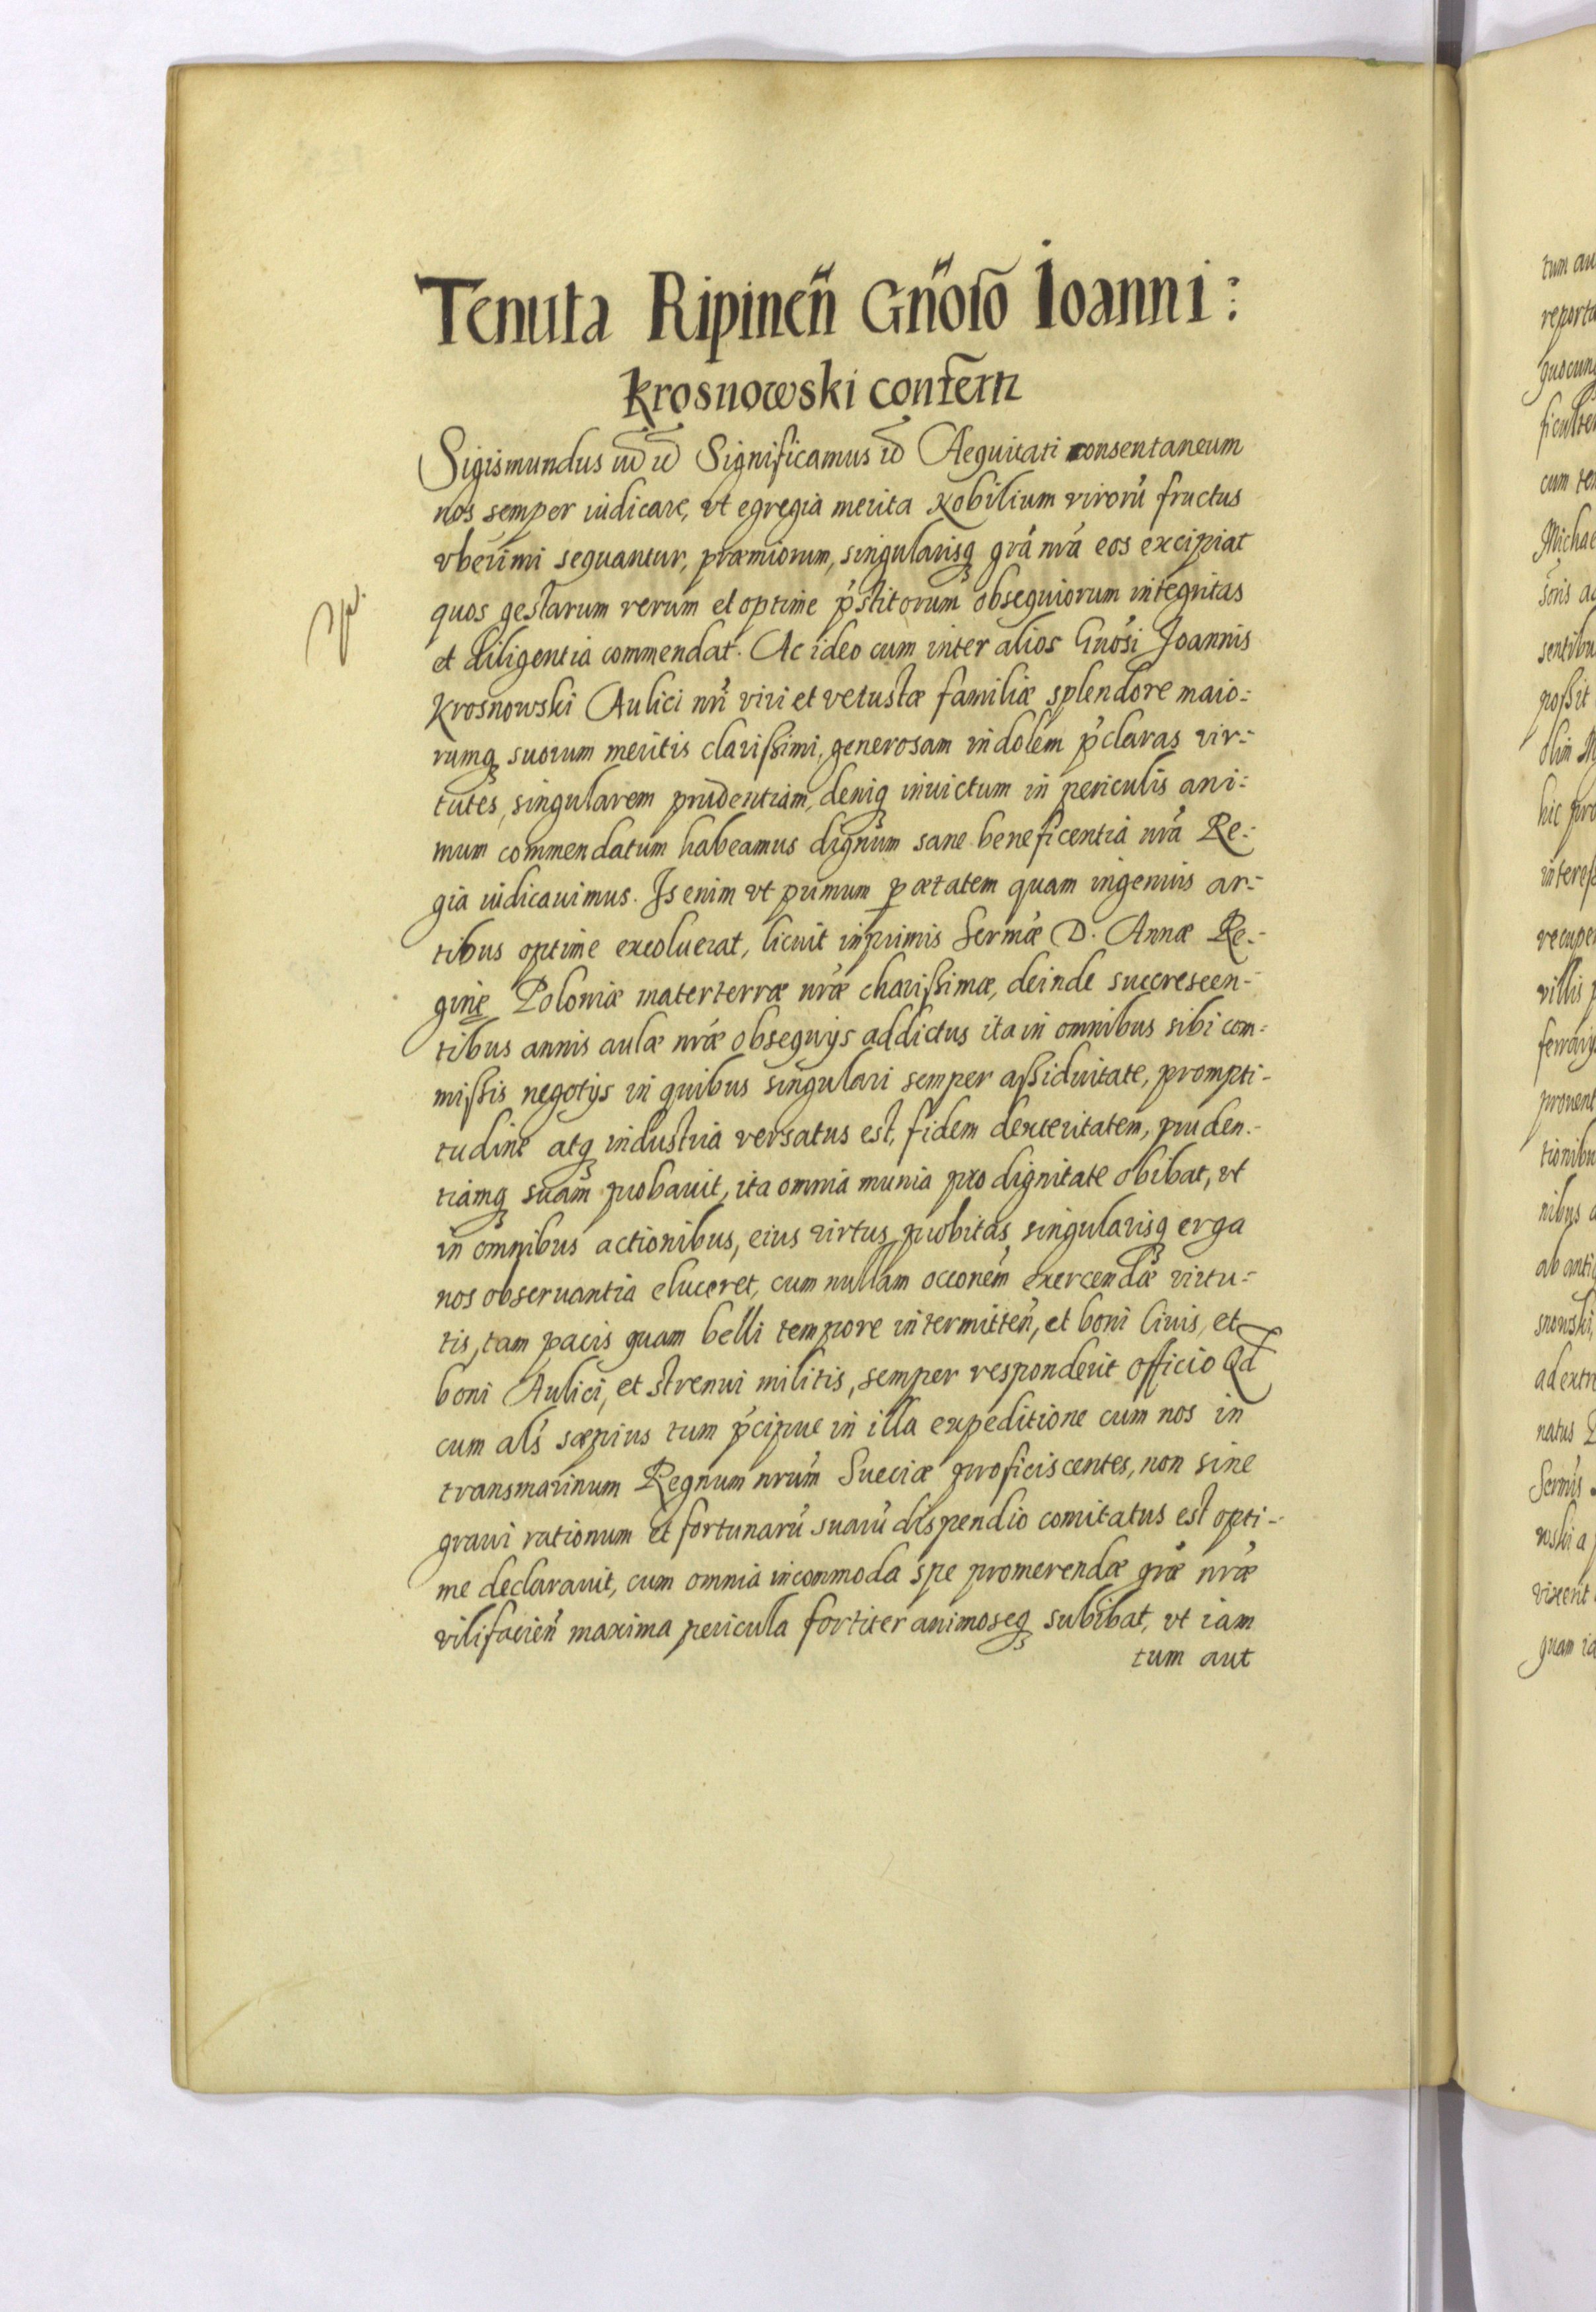 Tenuta Ripineñ Gñoso Ioanni:
Krosnowski confertr
Sigismundus etc etc Significamus etc Aequitati consentaneum
nos semper iudicare, vt egregia merita Nobilium virorũ fructus
vberrimi sequantur, præmiorum, singularisq grã nrã eos excipiat
quos gestarum rerum et optime p̃stitorum obsequiorum integritas
et diligentia commendat. Ac ideo cum inter alios Gnõsi Joannis
Krosnowski Aulici nri̇̃ viri et vetustæ familiæ splendore maio:
rumq suorum meritis clarißimi, generosam indolem p̃claras vir:
tutes, singularem prudentiam, deniq inuictum in periculis ani:
mum commendatum habeamus dignum sane beneficentia nrã Re:
gia iudicauimus. Is enim vt primum p ætatem quam ingenuis ar:
tibus optime excoluerat, licuit inprimis Sermæ D. Annæ Re:
ginę Poloniæ materterræ nræ charißimæ, deinde succrescen-
tibus annis aulæ nræ obsequijs addictus ita in omnibus sibi com:
mißis negotijs in quibus singulari semper aßiduitate, prompti-
tudine atq industria versatus est, fidem dexteritatem, pruden-
tiamq suam probauit, ita omnia munia pro dignitate obibat, vt
in omnibus actionibus, eius virtus probitas singularisq erga
nos obseruantia eluceret, cum nullam occonem exercendæ virtu:
tis, tam pacis quam belli tempore intermitteñ, et boni Ciuis, et
boni Aulici, et strenui militis, semper responderit officio Qd
cum als sæpius tum p̃cipue in illa expeditione cum nos in
transmarinum Regnum nrum Sueciæ proficiscentes, non sine
graui rationum et fortunarũ suarũ dispendio comitatus est opti-
me declarauit, cum omnia incommoda spe promerendæ græ nræ
vilifacieñ maxima pericula fortiter animoseq subibat, vt iam
tum aut
tum au
reporta
quocun
ficulte
cum te
Michae
soris a
sentibu
poßit
olim M
hic pro
interes
recupe
villis p
ferrarij
prouent
tionibu
nibus a
ab anti
snowski,
ad extr
natus
Sermis
wski a p
vixerit
quam ia